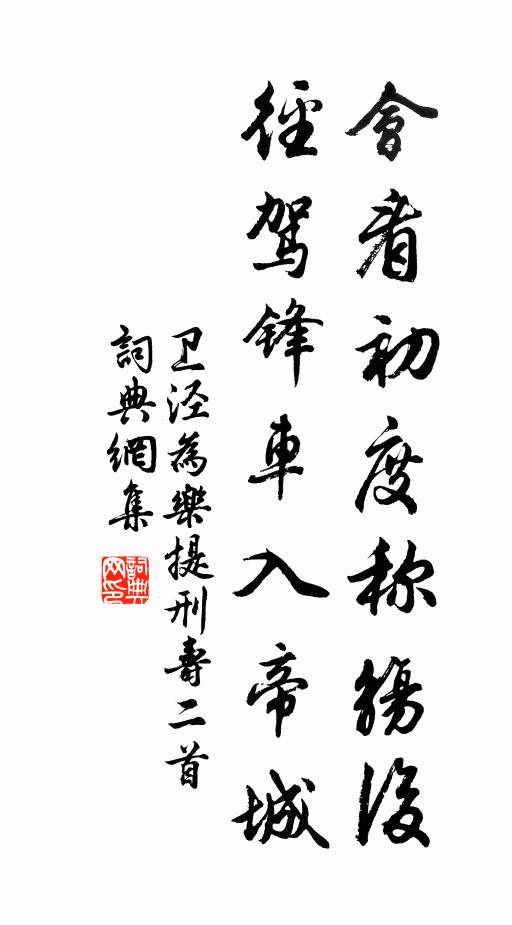 會看初度称觴後
徑駕鋒車入帝城
卫泾為樂提刑壽二首
詞典網集
詞典网印